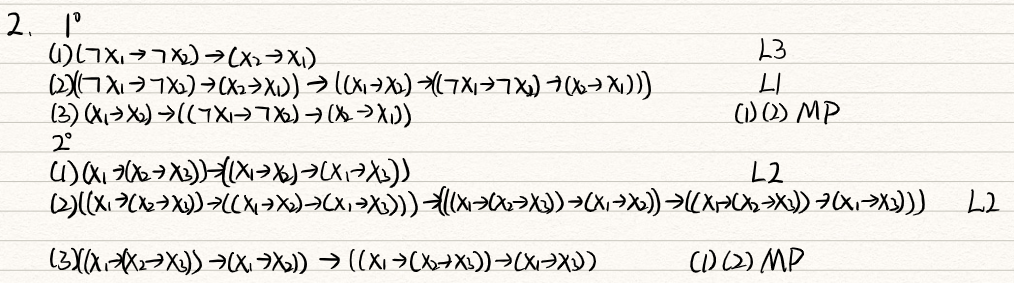 2. 1°
(1)(¬x₁→¬x₂)→(x₂→x₁) L3
(2)((¬x₁→¬x₂)→(x₂→x₁))→((x₁→x₂)→((¬x₁→¬x₂)→(x₂→x₁))) L1
(3)(x₁→x₂)→((¬x₁→¬x₂)→(x₂→x₁)) (1)(2)MP
2°
(1)(x₁→(x₂→x₃))→((x₁→x₂)→(x₁→x₃)) L2
(2)((x₁→(x₂→x₃))→((x₁→x₂)→(x₁→x₃)))→(((x₁→(x₂→x₃))→(x₁→x₂))→((x₁→(x₂→x₃))→(x₁→x₃))) L2
(3)((x₁→(x₂→x₃))→(x₁→x₂))→((x₁→(x₂→x₃))→(x₁→x₃)) (1)(2)MP